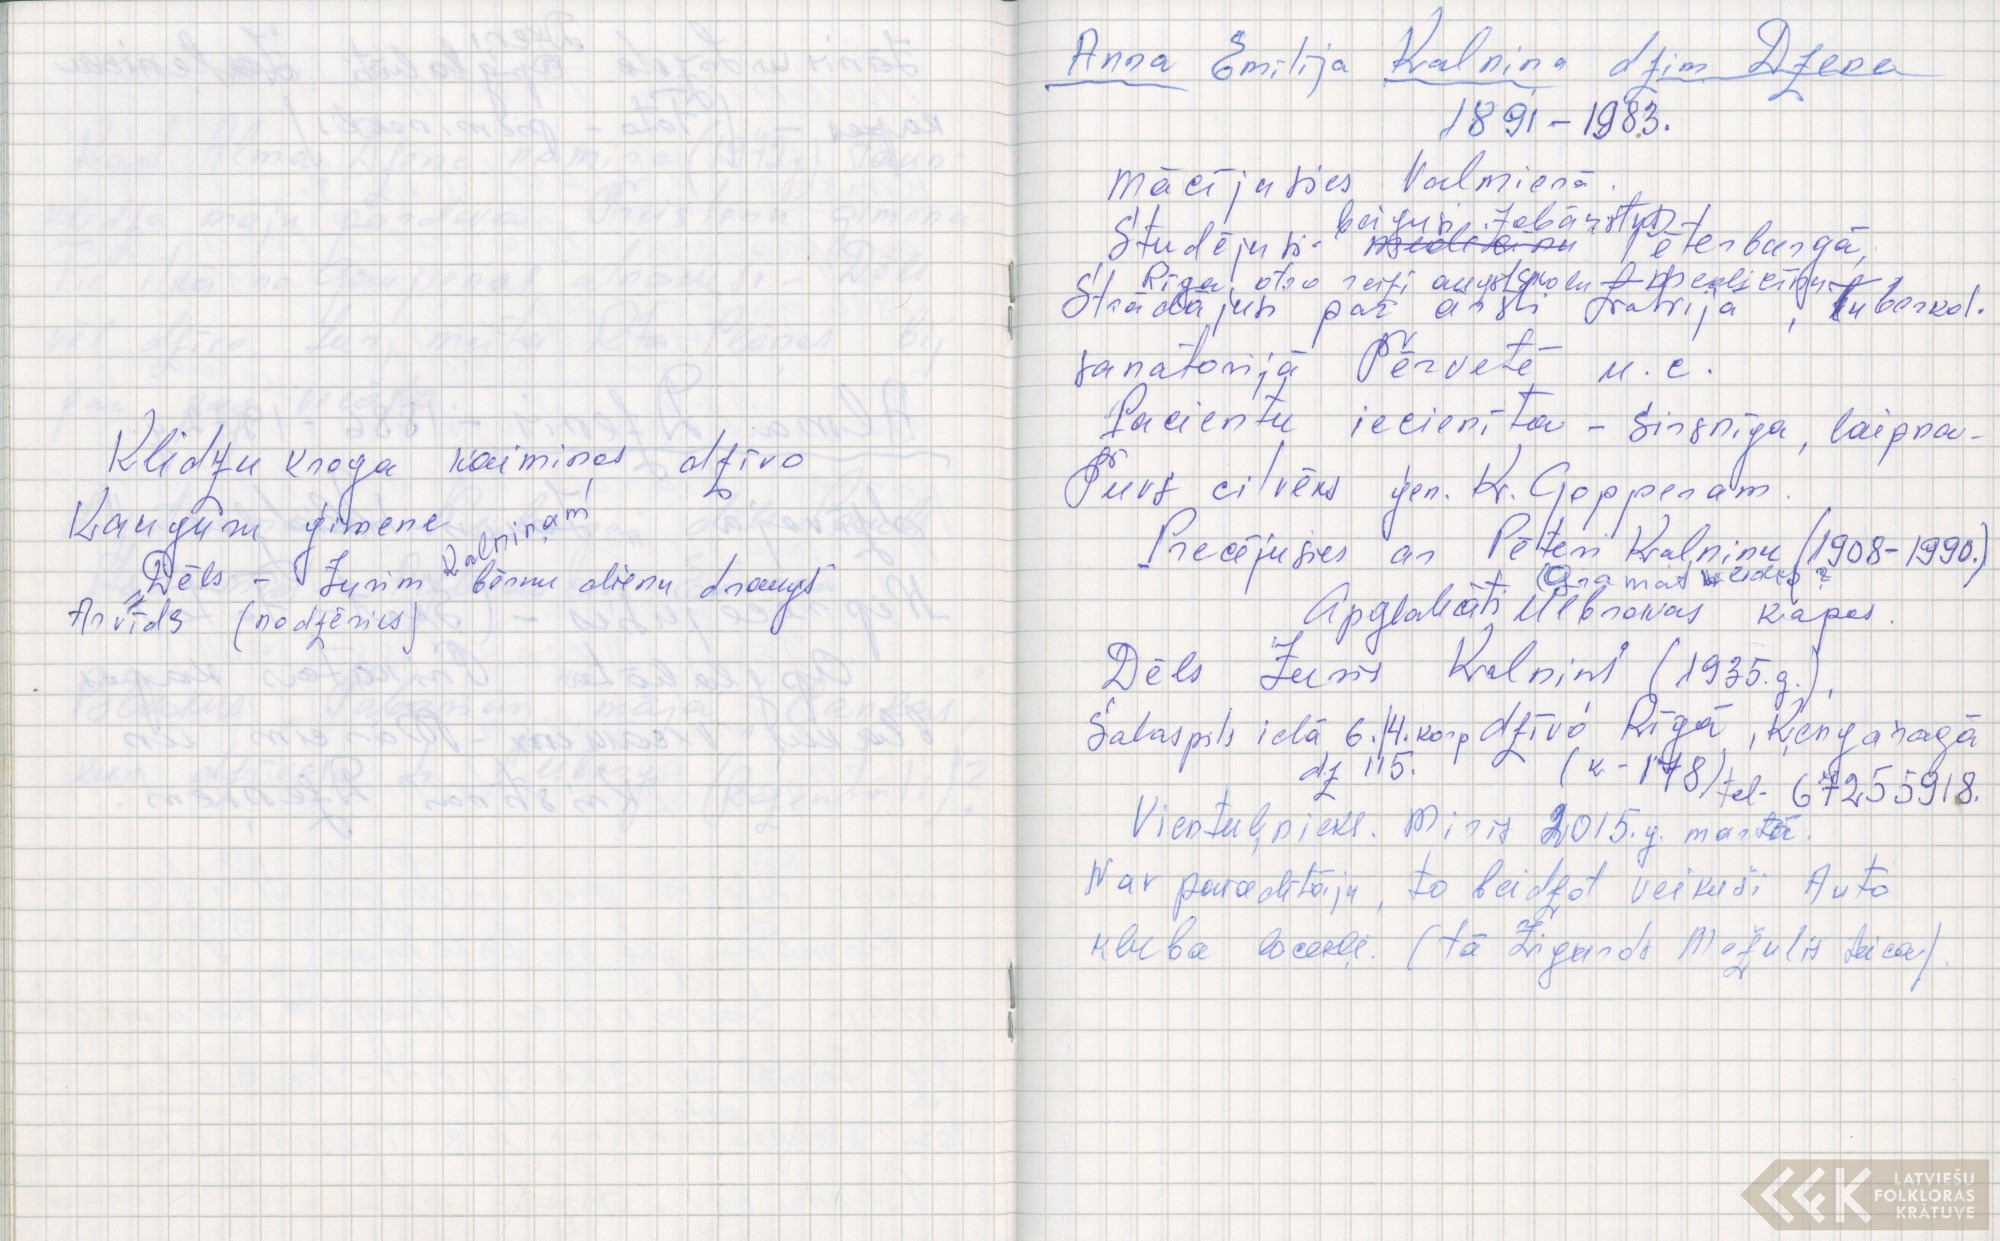 Klidžu kroga kaimiņos dzīvo
Kaugūru ģimene
Kalniņam
Dēls - Jurim bērnu dienu draugs
Arvīds (nodzēries)
Anna Emilija Kalniņa dzim Dzene
1891 - 1983.
Mācījusies Valmierā.
beigusi zobārstus
Studējusi - medicīnu Pēterburgā,
Rīgā otro reizi augstskolu - medicīnu
Strādājusi par ārsti Latvijā, tuberkol.
sanatorijā Tērvetē u.c.
Pacientu iecienīta - sirsnīga, laipna -
Tuvs cilvēks ģen. K. Gopperam.
Precējusies ar Pēteri Kalniņu (1908-1990.)
(Grāmatvedis?
Apglabāti Ulbrokas kapos.
Dēls Juris Kalniņš (1935.g.),
Salaspils ielā 6./4.korp dzīvo Rīgā, Ķengaragā
dz 115. (k-178) tel. 67255918.
Vientuļnieks. Miris 2015.g. martā.
Nav paradītāju, to beidzot veikuši Auto
kluba locekļi. (tā Zigurds Mežulis teica).
LATVIEŠU
FOLKLORAS
KRĀTUVE